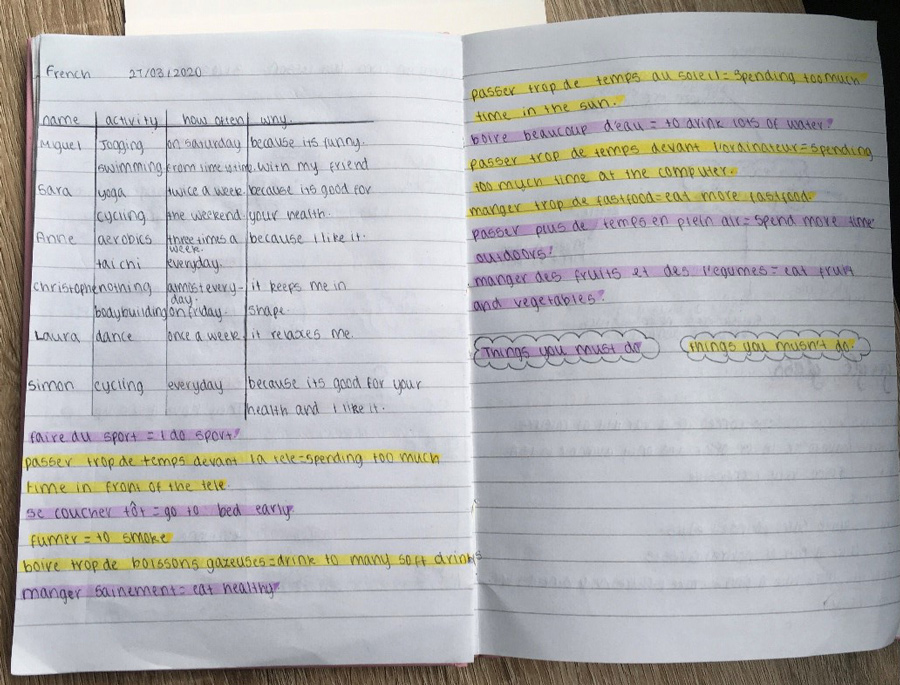 French 27/03/2020
name activity how often why.
Miguel Jogging on saturday because its funny.
swimming from time to time. with my friend
Sara yoga twice a week. because its good for
cycling the weekend your health.
Anne aerobics three times a week. because I like it.
tai chi everyday.
Christophe nothing almost every-day. it keeps me in
bodybuilding on friday. shape.
Laura dance once a week. it relaxes me.
Simon cycling everyday because its good for your
health and I like it.
faire du sport = I do sport.
passer trop de temps devant la tele = spending too much
time in front of the tele.
se coucher tôt = go to bed early.
fumer = to smoke
boire trop de boissons gazeuses = drink to many soft drinks
manger sainement = eat healthy.
passer trop de temps au soleil = Spending too much
time in the sun.
boire beaucoup d'eau = to drink lots of water.
passer trop de temps devant l'ordinateur = spending
too much time at the computer.
manger trop de fastfood = eat more fastfood.
passer plus de temps en plein air = spend more time
outdoors.
manger des fruits et des légumes = eat fruit
and vegetables.
Things you must do things you musn't do.